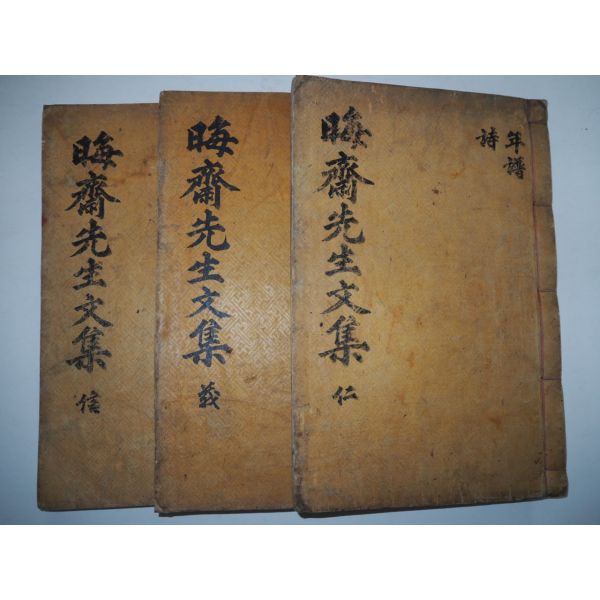 年譜
詩
晦齋先生文集 仁
晦齋先生文集 義
晦齋先生文集 信